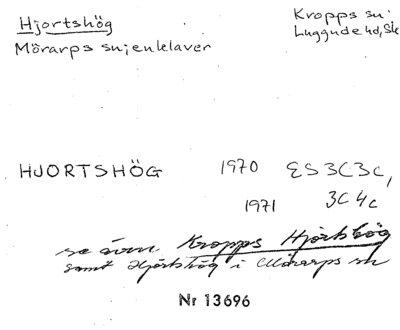 Hjortshög
Kropps sn.
Mörarps sn:enklaver
Luggude hd, Sk
HJORTSHÖG 1970 ES 3C3c,
1971 3C4c
se även Kropps Hjortshög
samt Hjortshög i Mörarps sn
Nr 13696